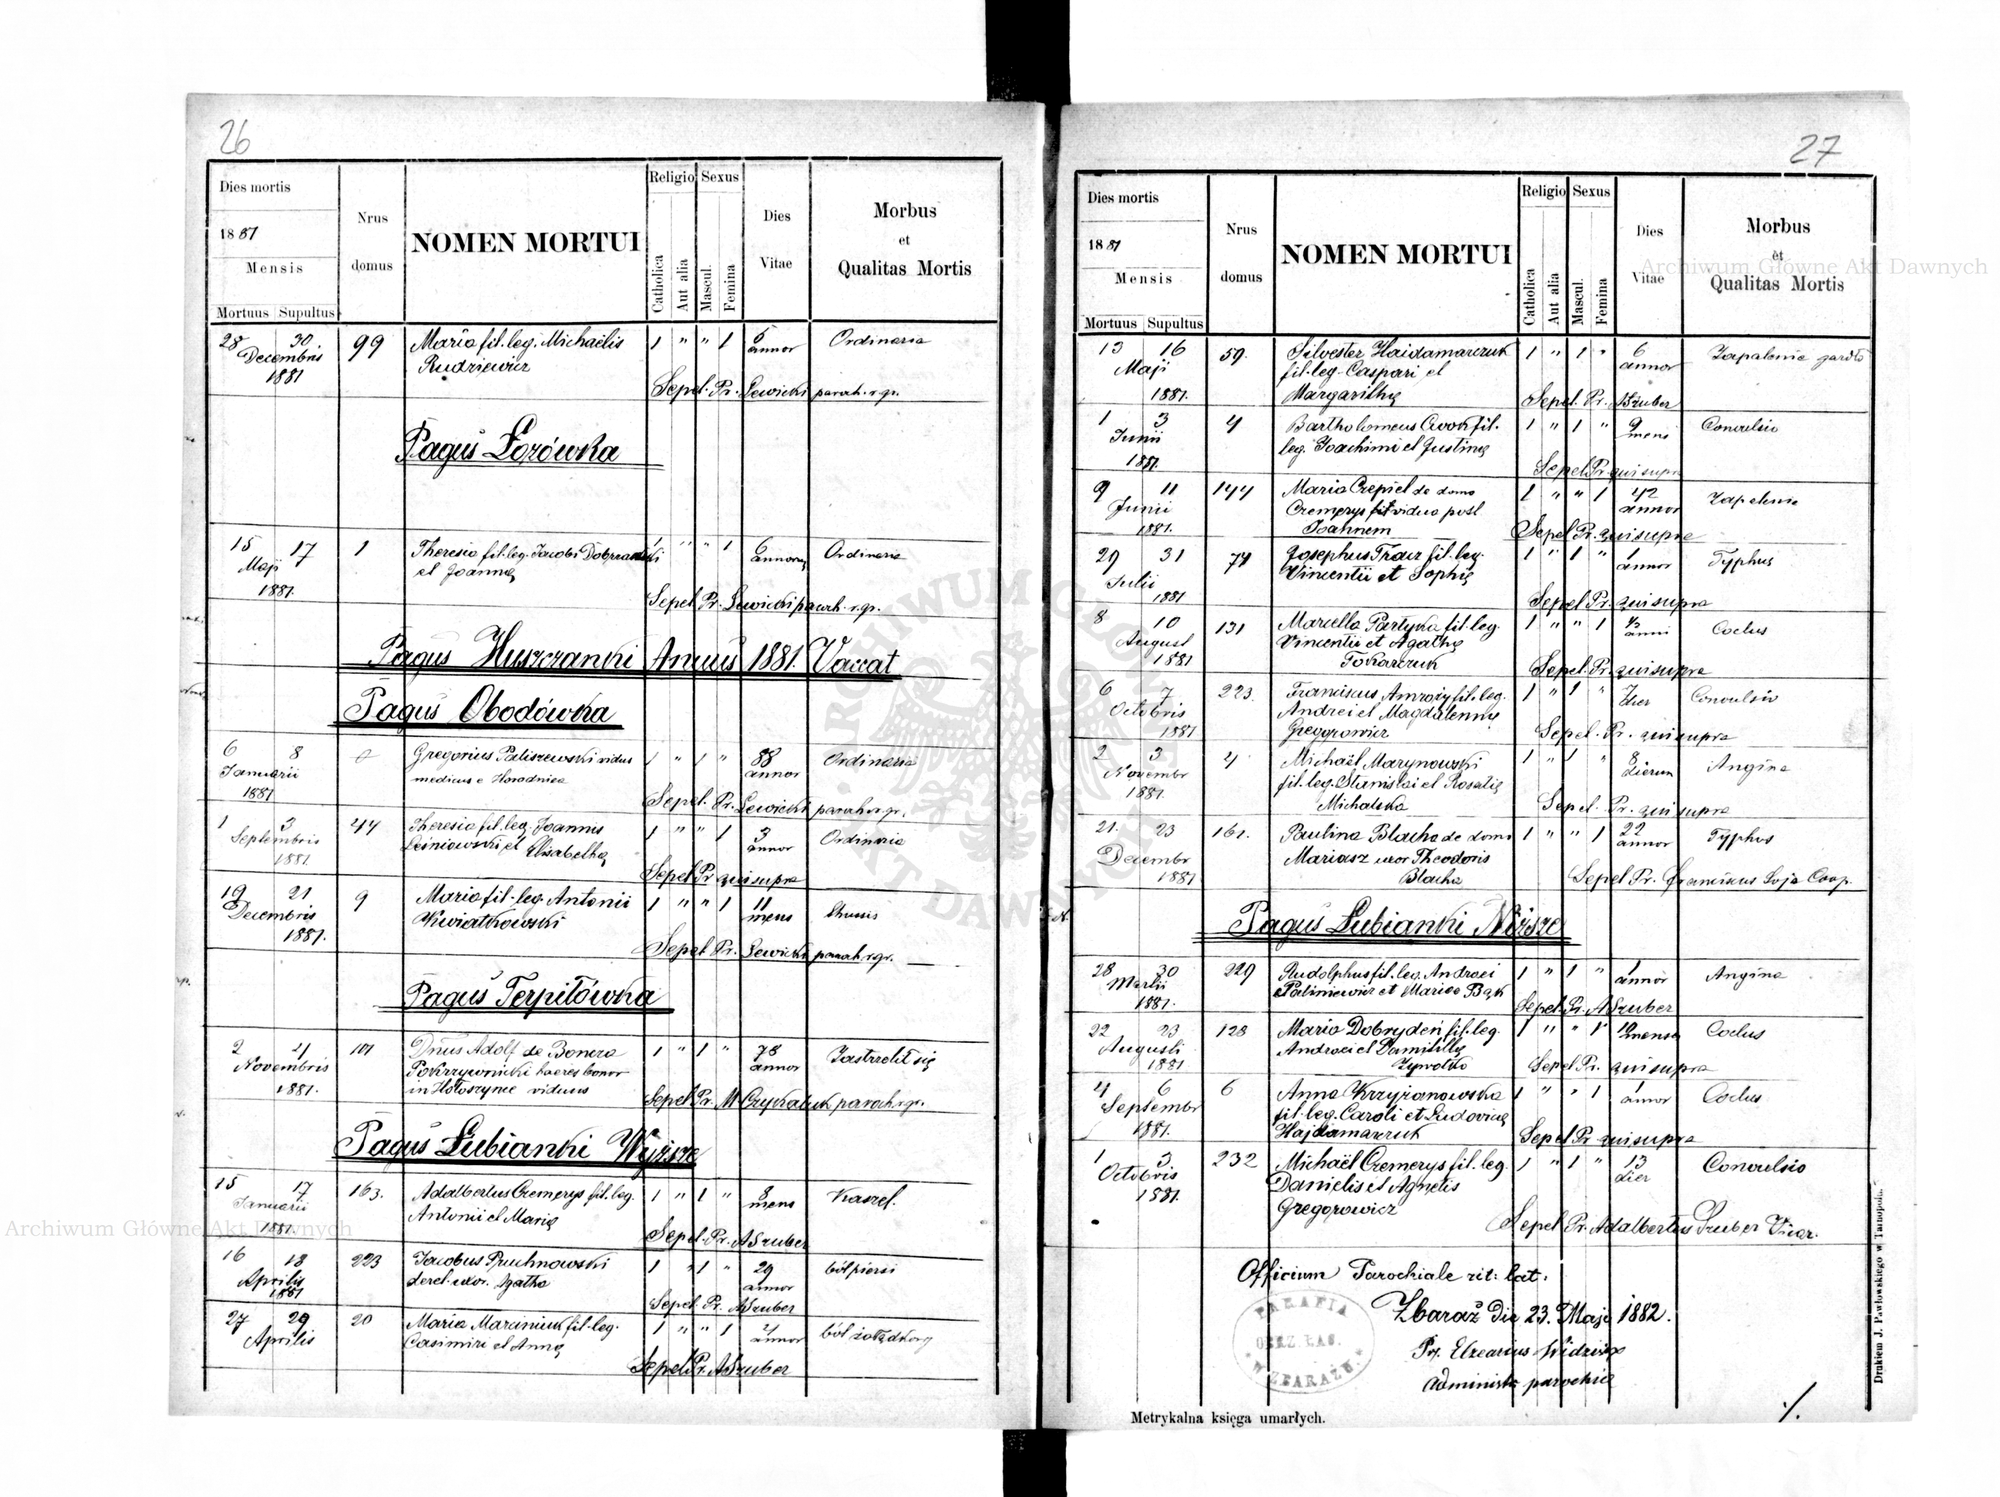 26
Dies mortis
1881
Mensis
Mortuus Supultus
Nrus domus
NOMEN MORTUI
Religio Sexus
Catholica Aut alia Mascul. Femina
Dies Vitae
Morbus
et
Qualitas Mortis
28 30 99 Maria fil. leg. Michaëlis 1 " " 1 annor Ordinaria
Decembris Rudziewicz
1881 Sepel. Pr. Lewicki paroch. r. gr.
Pagus
15 17 1 Theresia fil. leg. Jacobi 1 " " 1 6 Ordinaria
Maji et Joannę
1881. Sepel Pr. Lewicki paroch. r. gr.
Pagus Huszczanki Annus 1881. Vaccat
Pagus Obodówka
6 8 Gregorius Paliszewski vidus 1 " 1 " 88 annor Ordinaria
Januarii medicus e
1881 Sepel. Pr. Lewicki paroch r. gr.
1 3 44 Theresia fil. leg. Joannis 1 " " 1 3 annor Ordinaria
Septembris et Elisabethę
1881. Sepel Pr qui supra
19 21 9 Maria fil. leg. Antonii 1 " " 1 11 mens
Decembris Kwiatkowski
1881. Sepel Pr. Lewicki paroch r. gr.
Pagus Terpiłówka
2 4 101 Dnus Adolf de Boncza 1 " 1 " 78 annor Zastrzelił się
Novembris Pokrzywnicki haeres bonor
1881. in viduus
Sepel Pr. M paroch. r. gr.
Pagus Łubianki Wyższe
15 17 163. Adalbertus Cremerys fil. leg. 1 " 1 " 8 mens Kaszel.
Januarii Antonii et Marię
1881. Sepel. Pr. A Szuber
16 18 223 Jacobus Pruchnowski 1 " 1 " 29 annor ból piersi
Aprilis derel. uxor. Agatha
1881 Sepel. Pr. A Szuber
27 29 20 Maria Marciniuk fil. leg. 1 " " 1 annor ból
Aprilis Casimiri et Annę
Sepel Pr. A Szuber
27
Dies mortis
1881
Mensis
Mortuus Supultus
Nrus domus
NOMEN MORTUI
Religio Sexus
Catholica Aut alia Mascul. Femina
Dies Vitae
Morbus
et
Qualitas Mortis
13 16 59. Silvester Haidamarczuk 1 " 1 " 6 annor Zapalenie gardła
Maji fil. leg. Caspari et
1881. Margarithę Sepel. Pr. A Szuber
1 3 4 Bartholomeus fil. 1 " 1 " 9 mens Convulsio
Junii leg. Joachimi et Justinę
1881. Sepel Pr. qui supra
9 11 144 Maria Crepiel de domo 1 " " 1 42 annor Zapelenie
Junii Cremerys vidua post
1881. Joannem Sepel Pr. qui supra
29 31 74 Josephus fil. leg. 1 " 1 " 1 annor Typhus
Julii Vincentii et Sophię
1881 Sepel Pr. qui supra
8 10 131 Marcella Partyka fil. leg. 1 " " 1 anni Coclus
August Vincentii et Agathę
1881 Tokarczuk Sepel Pr. qui supra
6 7 223. Franciscus fil. leg. 1 " 1 " 7 dier Convulsio
Octobris Andrei et Magdalennę
1881 Gregorowicz Sepel. Pr. qui supra
2 3 4 Michaël Marynowski 1 " 1 " 8 dierum Angina
Novembr fil. leg. Stanislai et Rosalię
1881. Michalska Sepel. Pr. qui supra
21. 23 161. Paulina Blacha de domo 1 " " 1 22 annor Typhus
Decembr Mariasz uxor Theodoris
1881 Blacha Sepel Pr. Franciscus Soja Coop.
Pagus Łubianki Niższe
28 30 229 Rudolphus fil. leg. Andreei 1 " 1 " 1 annor Angina
Martii Paliniewicz et Mariae Bąk
1881. Sepel. Pr. A Szuber
22 23 128 Maria Dobrydeń fil. leg. 1 " " 1 10 mens Coclus
Augusti Andreei et Domitillę
1881 Żywotko Sepel Pr. qui supra
4 6 6 Anna Krzyżanowska 1 " " 1 1 annor Coclus
Septembr fil. leg. Caroli et Ludovicę
1881. Hajdamarczuk Sepel Pr qui supra
1 3 232 Michaël Cremerys fil. leg. 1 " 1 " 13 dier Convulsio
Octobris Danielis et Agnetis
1881. Gregorowicz
Sepel Pr. Adalbertus Szuber Vicar.
Officium Parochiale rit: lat:
Zbaraż die 23. Maji 1882.
Pr. Elzearius
Administr parochię
PARAFIA
OBRZ. ŁAC.
W ZBARAŻU.
Metrykalna księga umarłych.
Drukiem J. Pawłowskiego w Tarnopolu.
Archiwum Główne Akt Dawnych
Archiwum Główne Akt Dawnych
ARCHIWUM GŁÓWNE AKT DAWNYCH